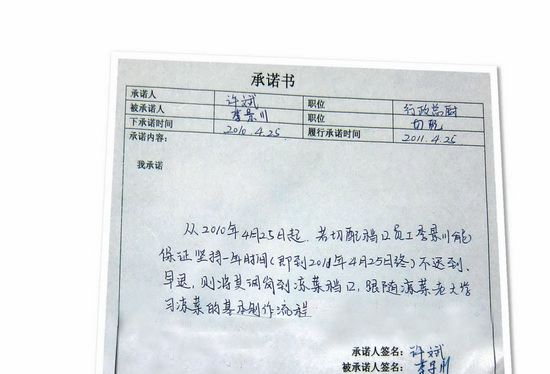 承诺书
承诺人 许斌 职位 行政总厨
被承诺人 李景川 职位 切配
下承诺时间 2010.4.25 履行承诺时间 2011.4.25
承诺内容:
我承诺
从2010年4月25日起,若切配档口员工李景川能
保证坚持一年时间(即到2011年4月25日终)不迟到、
早退,则将其调岗到冻菜档口,跟随冻菜老大学
习冻菜的基及制作流程
承诺人签名: 许斌
被承诺人签名: 李景川